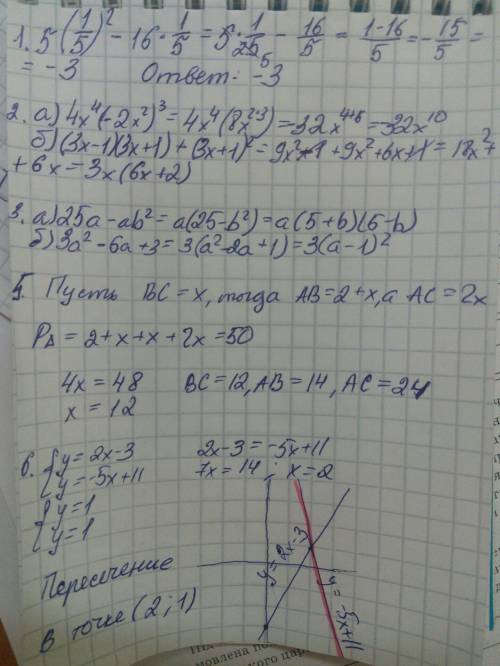 1. 5(1/5)² - 16·1/5 = 5·1/25 - 16/5 = (1-16)/5 = -15/5 =
= -3 Ответ: -3
2. а) 4x⁴(-2x²)³ = 4x⁴(8x²·³) = -32x⁴⁺⁶ = -32x¹⁰
б) (3x-1)(3x+1) + (3x+1)² = 9x²-1+9x²+6x+1 = 18x²+
+ 6x = 3x(6x+2)
3. а) 25a - ab² = a(25-b²) = a(5+b)(5-b)
б) 3a² - 6a + 3 = 3(a²-2a+1) = 3(a-1)²
5. Пусть BC = x, тогда AB = 2+x, а AC = 2x
P∆ = 2+x+x+2x = 50
4x = 48 BC = 12, AB = 14, AC = 24
x = 12
6. { y = 2x-3 2x-3 = -5x+11
y = -5x+11 7x = 14 ; x = 2
{ y = 1
y = 1
y = 2x-3
y = -5x+11
Пересечение
в точке (2;1)